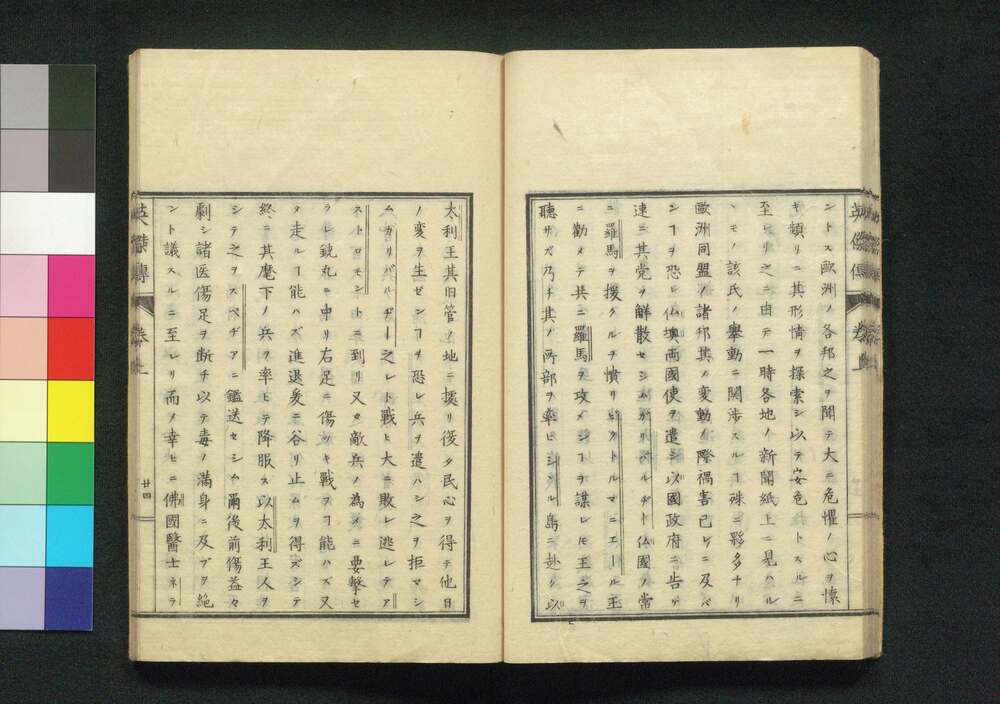 ントス歐洲ノ各邦之ヲ聞テ大ニ危懼ノ心ヲ懐
キ頻リニ其形情ヲ探索シ以テ安危ヲトスルニ
至レリ之ニ由テ一時各地ノ新聞紙上ニ見ハル
ヽモノ該氏ノ擧動ニ関渉スルヿ殊ニ夥多ナリ
歐洲同盟ノ諸邦其ノ変動ノ際禍害己レニ及バ
ンヿヲ恐レ仏墺両國使ヲ遣シ以國政府ニ告ゲ
速ニ其党ヲ解散セシムガリバルヂー仏國ノ常
ニ羅馬ヲ援クルヲ憤リビクトルマニエール王
ニ勸メテ共ニ羅馬ヲ攻メンヿヲ謀レ𪜈王之ヲ
聴サズ乃チ其ノ所部ヲ率ヒシシル島ニ赴ク以
太利王其旧管ノ地ニ據リ後タ民心ヲ得テ他日
ノ変ヲ生ゼンヿヲ恐レ兵ヲ遣ハシ之ヲ拒マシ
ムガリバルヂー之レト戰ヒ大ニ敗レ逃レテア
ストロモントニ到リ又タ敵兵ノ為メニ要撃セ
ラレ銃丸ニ中リ右足ニ傷ツキ戰フヿ能ハズ又
タ走ルヿ能ハズ進退爰ニ谷リ止ムヲ得ズシテ
終ニ其麾下ノ兵ヲ率ヒテ降服ス以太利王人ヲ
シテ之ヲスペヂアニ鑑送セシム爾後前傷益々
劇シ諸医傷足ヲ断チ以テ毒ノ満身ニ及ブヲ絶
ント議スルニ至レリ而ノ幸ヒニ佛國醫士ネラ
英傑傳 卷上 廿四